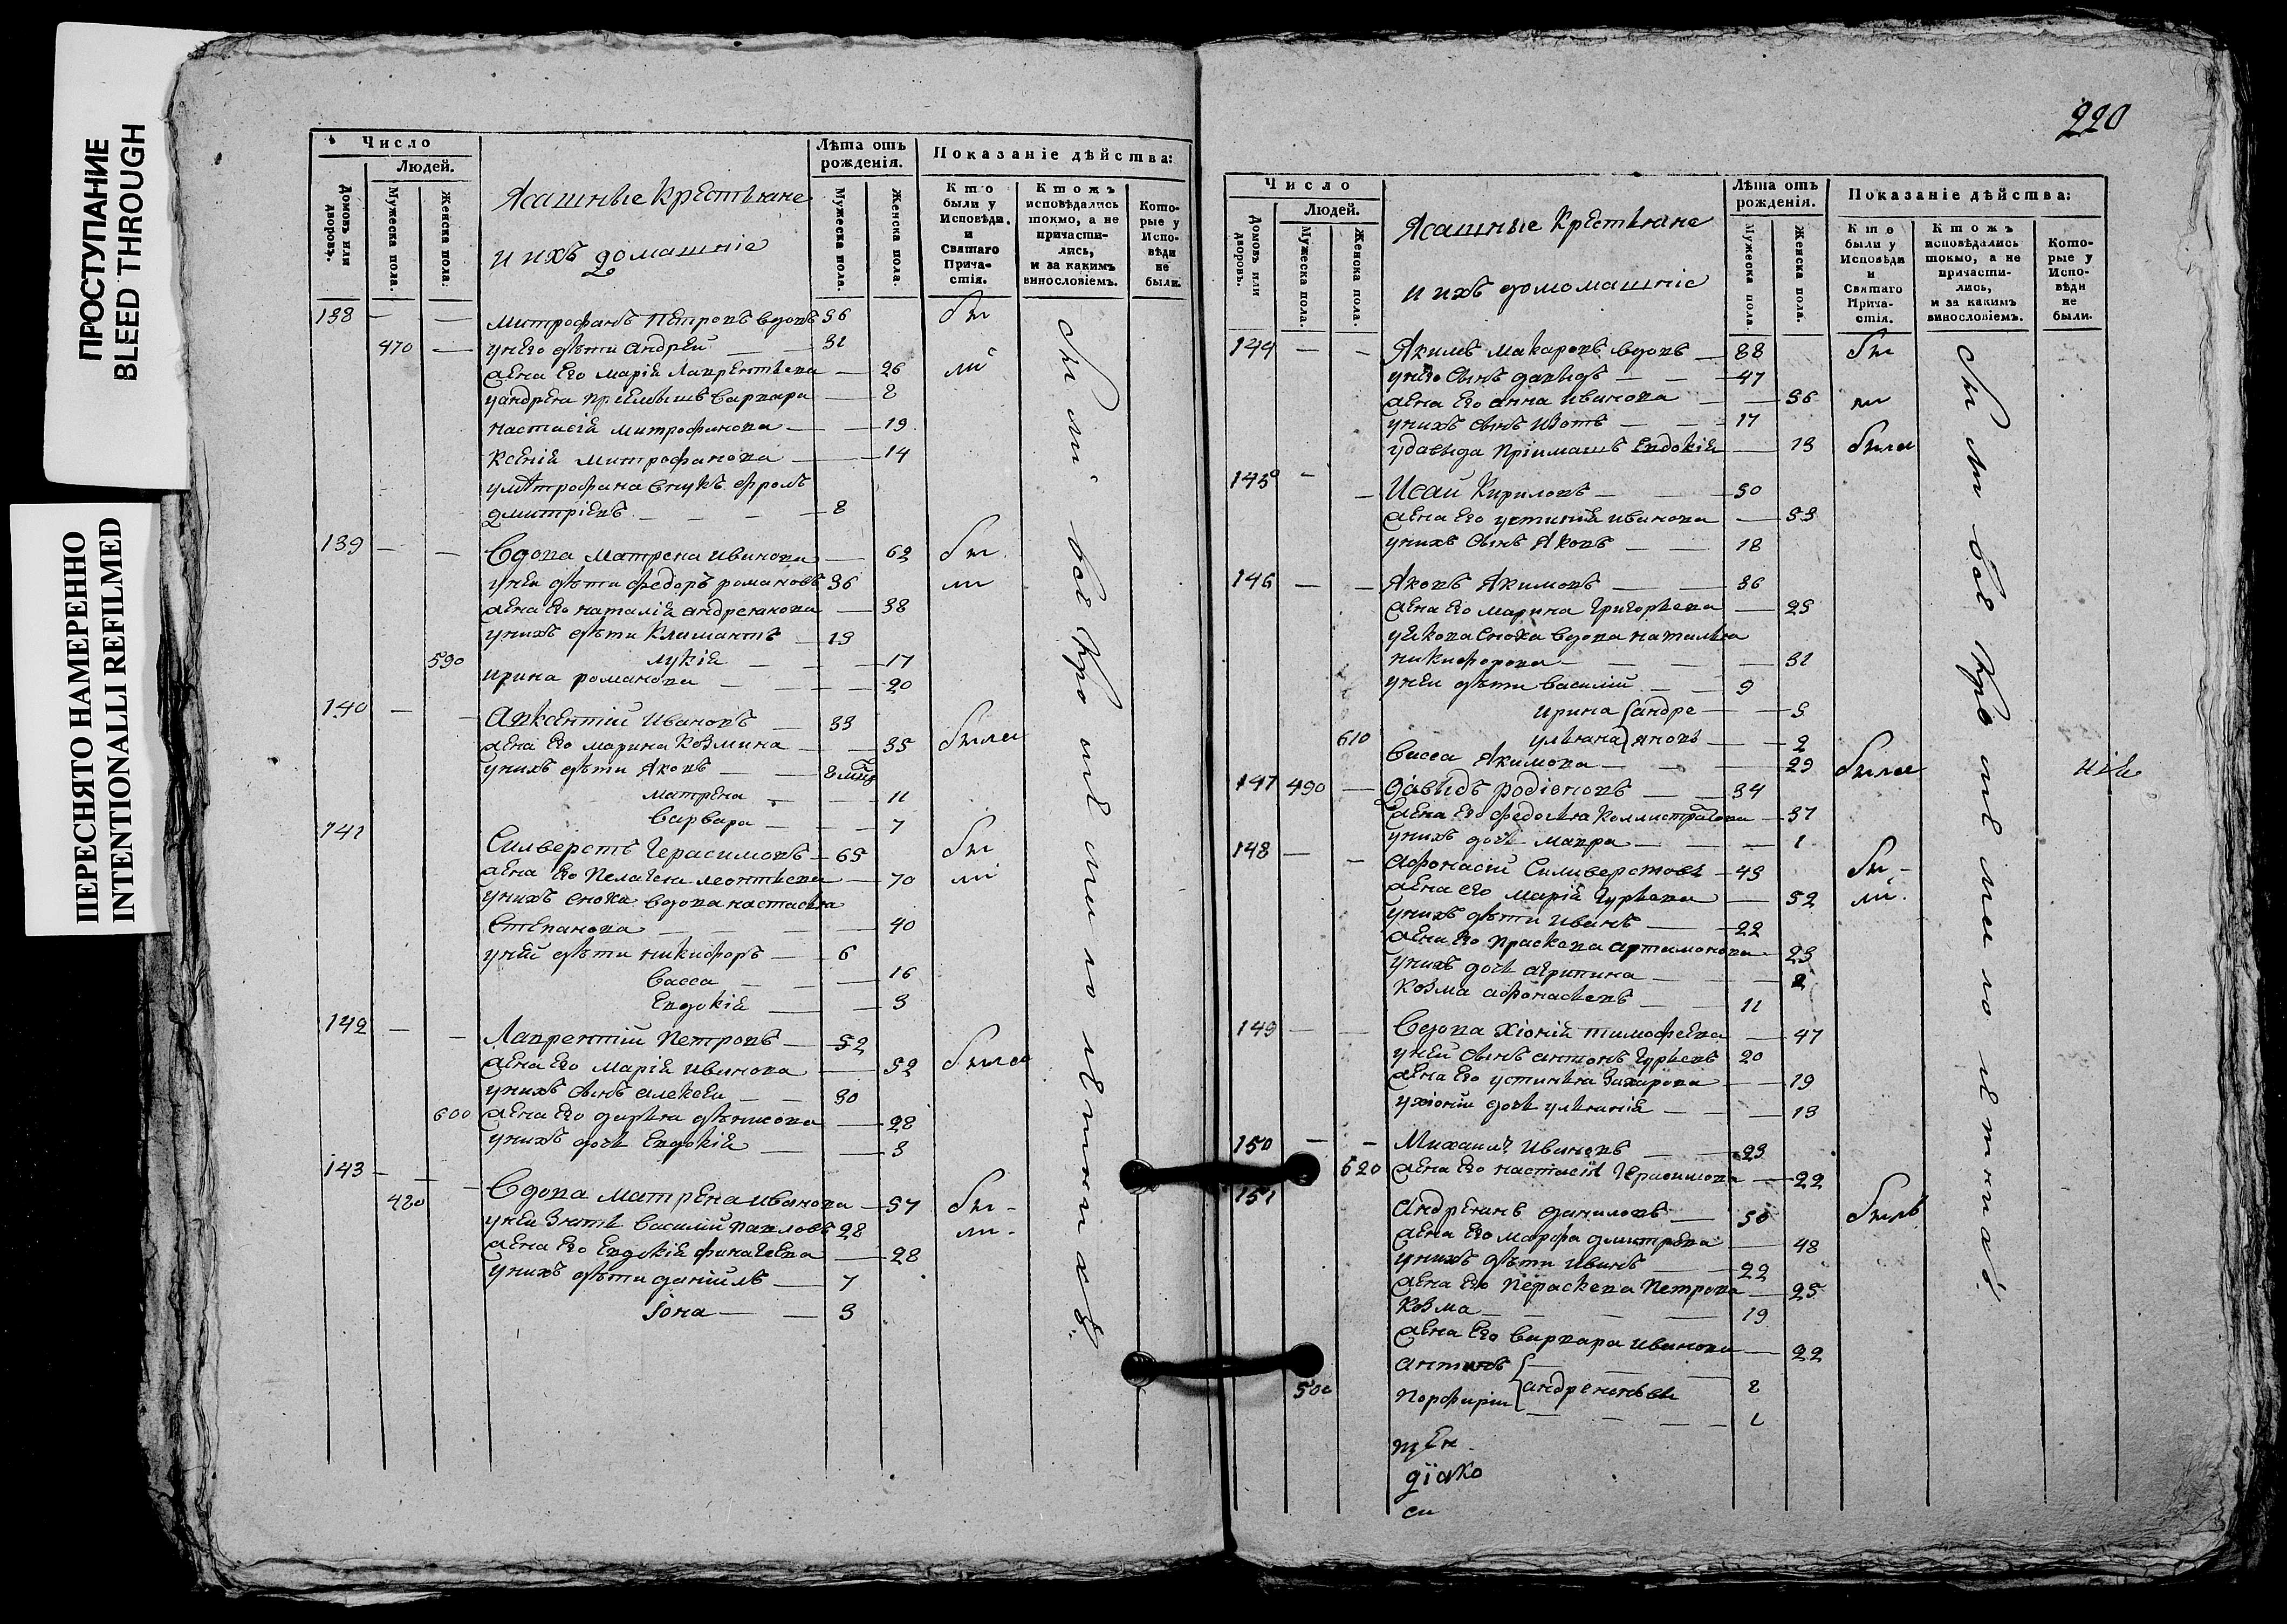 ПРОСТУПАНИЕ
BLEED THROUGH
ПЕРЕСНЯТО НАМЕРЕННО
INTENTIONALLI REFILMED
Число
Людей.
Домовъ или дворовъ.
Мужеска пола.
Женска пола.
Ясашные Крестьяне
и ихъ домашніе
Лѣта отъ рожденія.
Мужеска пола.
Женска пола.
Показаніе дѣйства:
Кто были у Исповѣди и Святаго Причастія.
Ктожъ исповѣдались токмо, а не причастились, и за какимъ винословіемъ.
Которые у Исповѣди не были.
138 — — Митрофанъ Петровъ вдовъ 36 бы
470 — у него дѣти Андрей — 31
жена Его Марія Лаврентьева — 26 ли
у Андрея приемышъ Варвара — 8
Настасія Митрофанова — 19
Ксенія Митрофанова — 14
у Митрофана внукъ Фролъ
Дмитріевъ — 8
139 — — Вдова Матрена Иванова — 62 бы
у ней дѣти Федоръ Романовъ 36 ли
жена Его Наталія Андреянова — 38
у нихъ дѣти Климантъ — 19
590 Лукія — 17
Ирина Романова — 20
140 — — Авксентій Ивановъ — 33
жена Его Марина Козмина — 35 были
у нихъ дѣти Яковъ — 8 мцъ
Матрена — 11
Варвара — 7
141 Силверстъ Герасимовъ — 65 бы
жена Его Пелагея Леонтьева — 70 ли
у нихъ сноха вдова Настасья
Степанова — 40
у ней дѣти Никифоръ — 6
Васса — 16
Евдокія — 3
142 — — Лаврентій Петровъ — 52
жена Его Марія Иванова — 52 были
у нихъ сынъ Алексей — 30
600 жена Его Дарья Дѣнисова — 28
у нихъ дочь Евдокія — 3
143 — — Вдова Матрена Иванова — 57 бы
480 у ней зять Василий Павловъ 28 ли
жена Его Евдокія Финагеева — 28
у нихъ дѣти Даніилъ — 7
Іона — 3
бы ли всѣ кро мѣ ма ло лѣ тныхъ
220
Число
Людей.
Домовъ или дворовъ.
Мужеска пола.
Женска пола.
Ясашные Крестьяне
и ихъ домомашніе
Лѣта отъ рожденія.
Мужеска пола.
Женска пола.
Показаніе дѣйства:
Кто были у Исповѣди и Святаго Причастія.
Ктожъ исповѣдались токмо, а не причастились, и за какимъ винословіемъ.
Которые у Исповѣди не были.
144 — — Якимъ Макаровъ вдовъ — 88 бы
у него сынъ Давыдъ — 47
жена Его Анна Иванова — 36 ли
у нихъ сынъ Изотъ — 17
у Давыда пріимышъ Евдокія — 13 были
145 — — Исай Кириловъ — 50
жена Его Устинія Иванова — 53
у нихъ сынъ Яковъ — 18
146 — — Яковъ Якимовъ — 36
жена Его Марина Григорьева — 25
у Якова сноха вдова Наталья
Никифорова — 31
у ней дѣти Василий — 9
Ирина Андре — 5
610 Ульяна яновы — 2
Васса Якимова — 29 были
147 490 — Давыдъ Родіоновъ — 34
жена Его Федосья Коллистратова — 37
у нихъ дочь Мавра — 1
148 — — Афонасий Силиверстовъ — 43 бы
жена его Марія Гурьева — 52 ли
у нихъ дѣти Иванъ — 22
жена Его Праскева Артимонова — 23
у нихъ дочь Агрипина — 2
Козма Афонасьевъ — 11
149 — — Вдова Хіонія Тимофеева — 47
у ней сынъ Антонъ Гурьевъ 20
жена Его Устинья Захарова — 19
у Хіоніи дочь Ульянія — 13
150 — — Михаилъ Ивановъ — 23
620 жена Его Настасія Герасимова — 22
151 Андреянъ Даниловъ — 50 былъ
жена Его Марфа Дмитрева — 48
у нихъ дѣти Иванъ — 22
жена Его Пераскева Петрова — 25
Козма — 19
жена Его Варвара Иванова — 22
Антонъ
500 Порфирій Андреяновы 8
1
бы ли всѣ кро мѣ ма ло лѣ тныхъ
діако